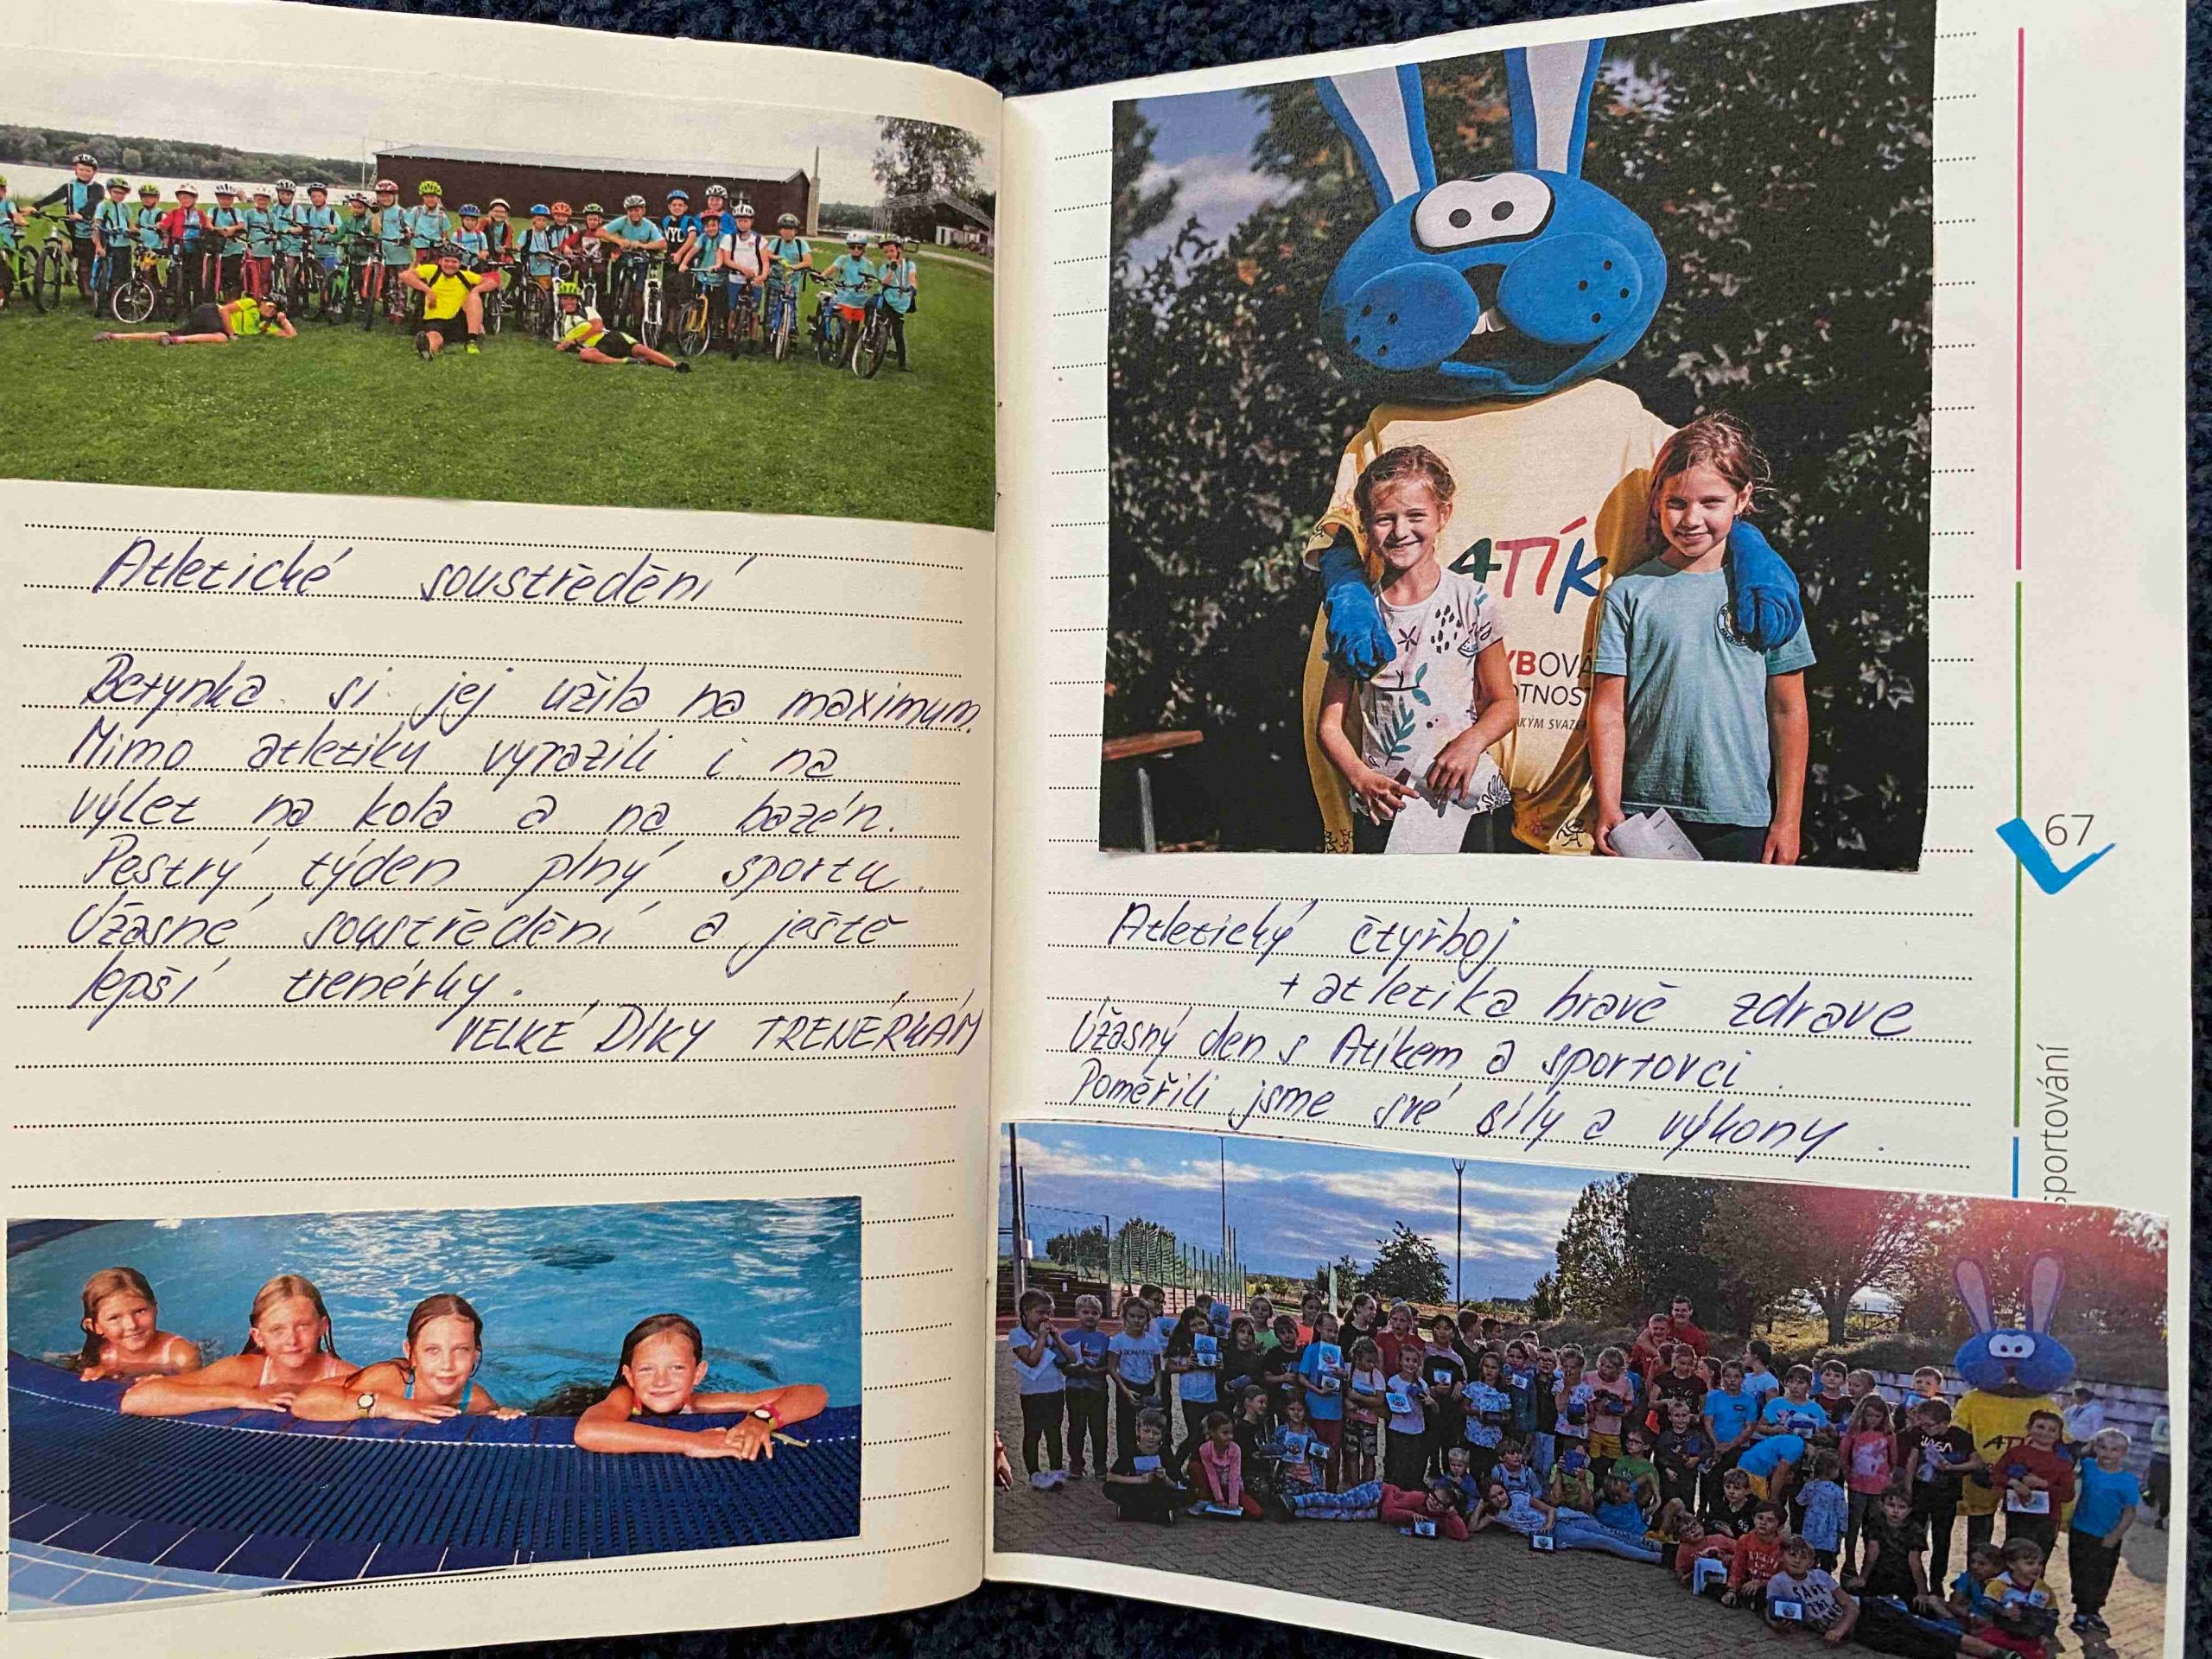 Atletické soustředění
Betynka si jej užila na maximum.
Mimo atletiku vyrazili i na
výlet na kola a na bazén.
Pestrý týden plný sportu.
Úžasné soustředění a ještě
lepší trenérky.
VELKÉ DÍKY TRENÉRKÁM
ATÍK
YBOVÁ
OTNOST
KÝM SVAZE
67
Atletický čtyřboj
+ atletika hravě zdravě
Úžasný den s Atíkem a sportovci.
Poměřili jsme své síly a výkony.
sportování